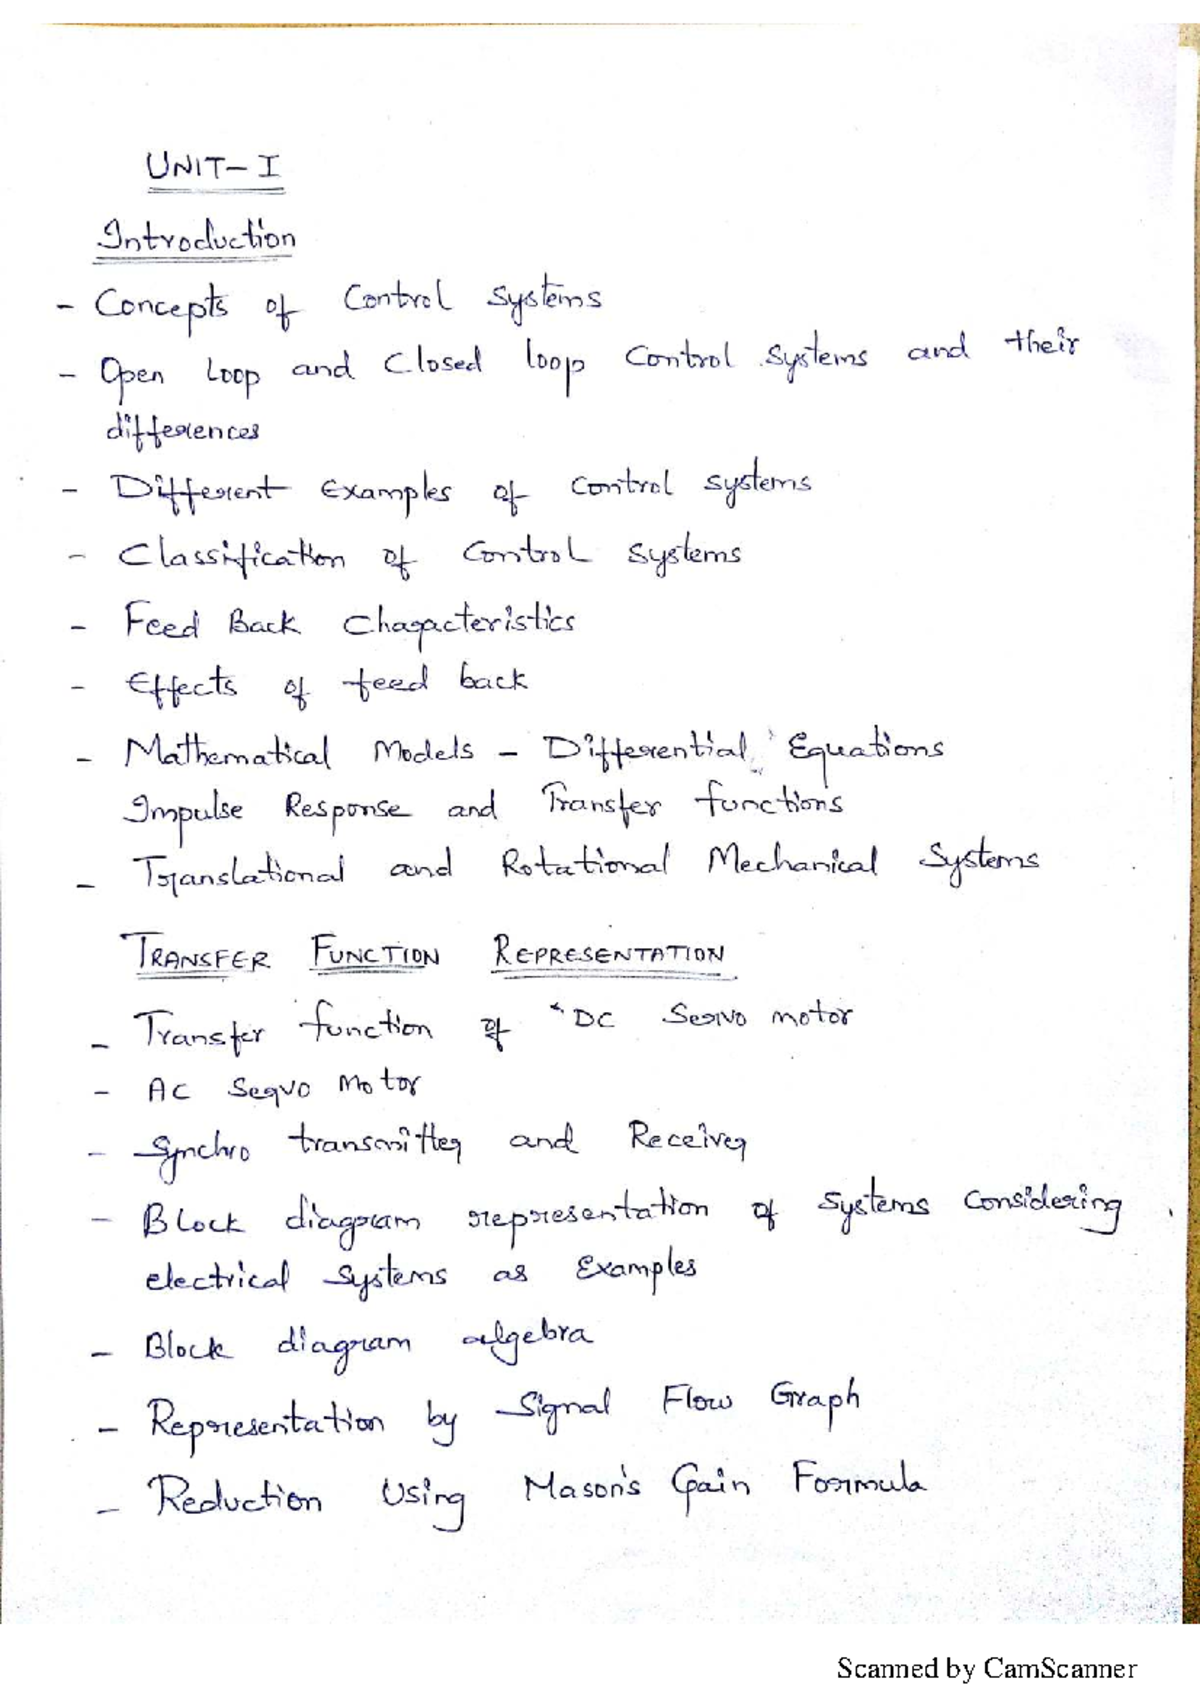 UNIT-I
Introduction
- Concepts of Control Systems
- Open Loop and Closed loop Control Systems and their
differences
- Different Examples of control systems
- Classification of Control Systems
- Feed Back Characteristics
- Effects of feed back
- Mathematical Models - Differential Equations
Impulse Response and Transfer functions
- Translational and Rotational Mechanical Systems
TRANSFER FUNCTION REPRESENTATION
- Transfer function of DC Servo motor
- AC Servo Motor
- Synchro transmitter and Receiver
- Block diagram representation of Systems Considering
electrical systems as Examples
- Block diagram algebra
- Representation by Signal Flow Graph
- Reduction Using Mason's Gain Formula
Scanned by CamScanner